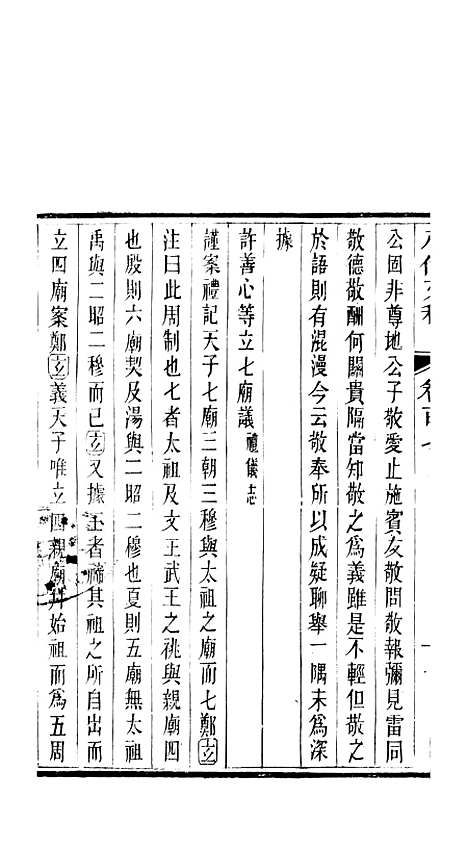 公固非尊地公子敬愛止施賓友敬問敬報彌見雷同
敬德敬酬何關貴隔當知敬之爲義雖是不輕但敬之
於語則有混漫今云敬奉所以成疑聊舉一隅未爲深
據
許善心等立七廟議禮儀志
謹案禮記天子七廟三朝三穆與太祖之廟而七鄭玄
注曰此周制也七者太祖及文王武王之祧與親廟四
也殷則六廟契及湯與二昭二穆也夏則五廟無太祖
禹與二昭二穆而已玄又據王者禘其祖之所自出而
立四廟案鄭玄義天子唯立四親廟并始祖而爲五周